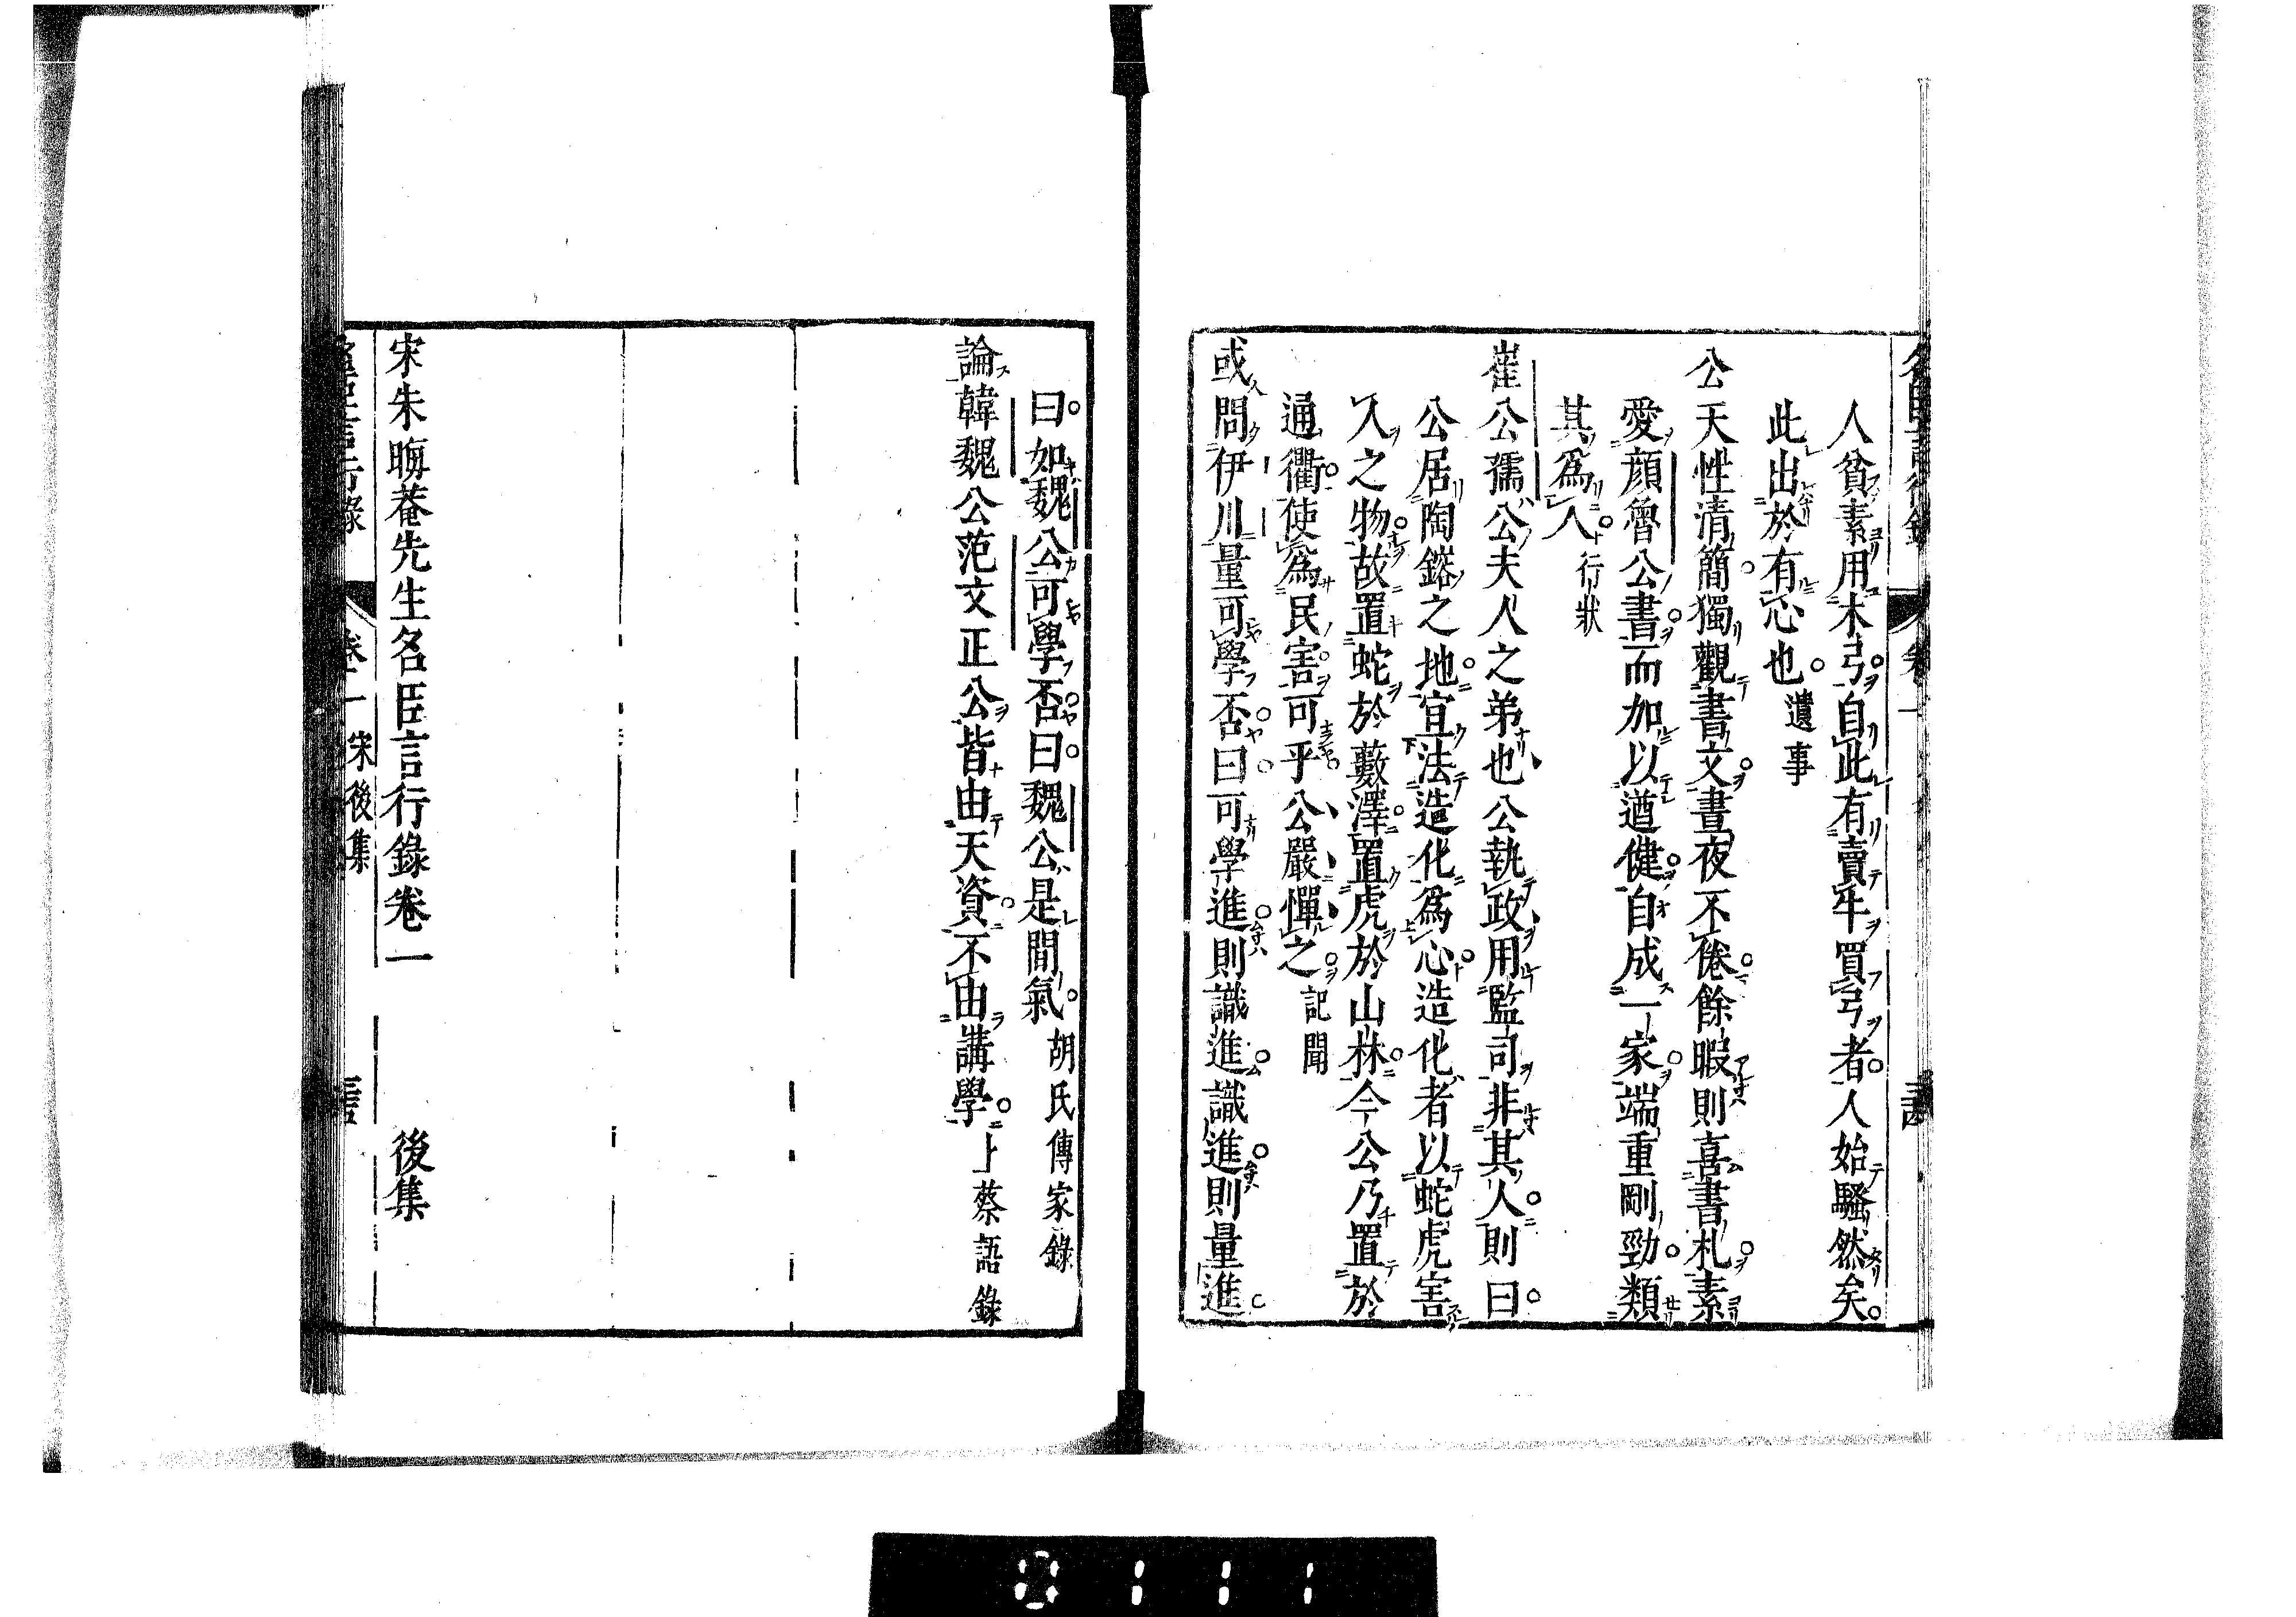 人貧素用木弓自此有賣牛買弓者人始騷然矣
此出於有心也遺事
公天性清簡獨觀書文晝夜不倦餘暇則喜書札素
愛顔魯公書而加以遒健自成一家端重剛勁類
其為人行狀
崔公孺公夫人之弟也公執政用監司非其人則曰
公居陶鎔之地宜法造化為心造化者以蛇虎害
人之物故置蛇於藪澤置虎於山林今公乃置於
通衢使為民害可乎公嚴憚之記聞
或問伊川量可學否曰可學進則識進識進則量進
曰如魏公可學否曰魏公是間氣胡氏傳家錄
論韓魏公范文正公皆由天資不由講學上蔡語錄
宋朱晦菴先生名臣言行錄卷一 後集
宋後集
0111